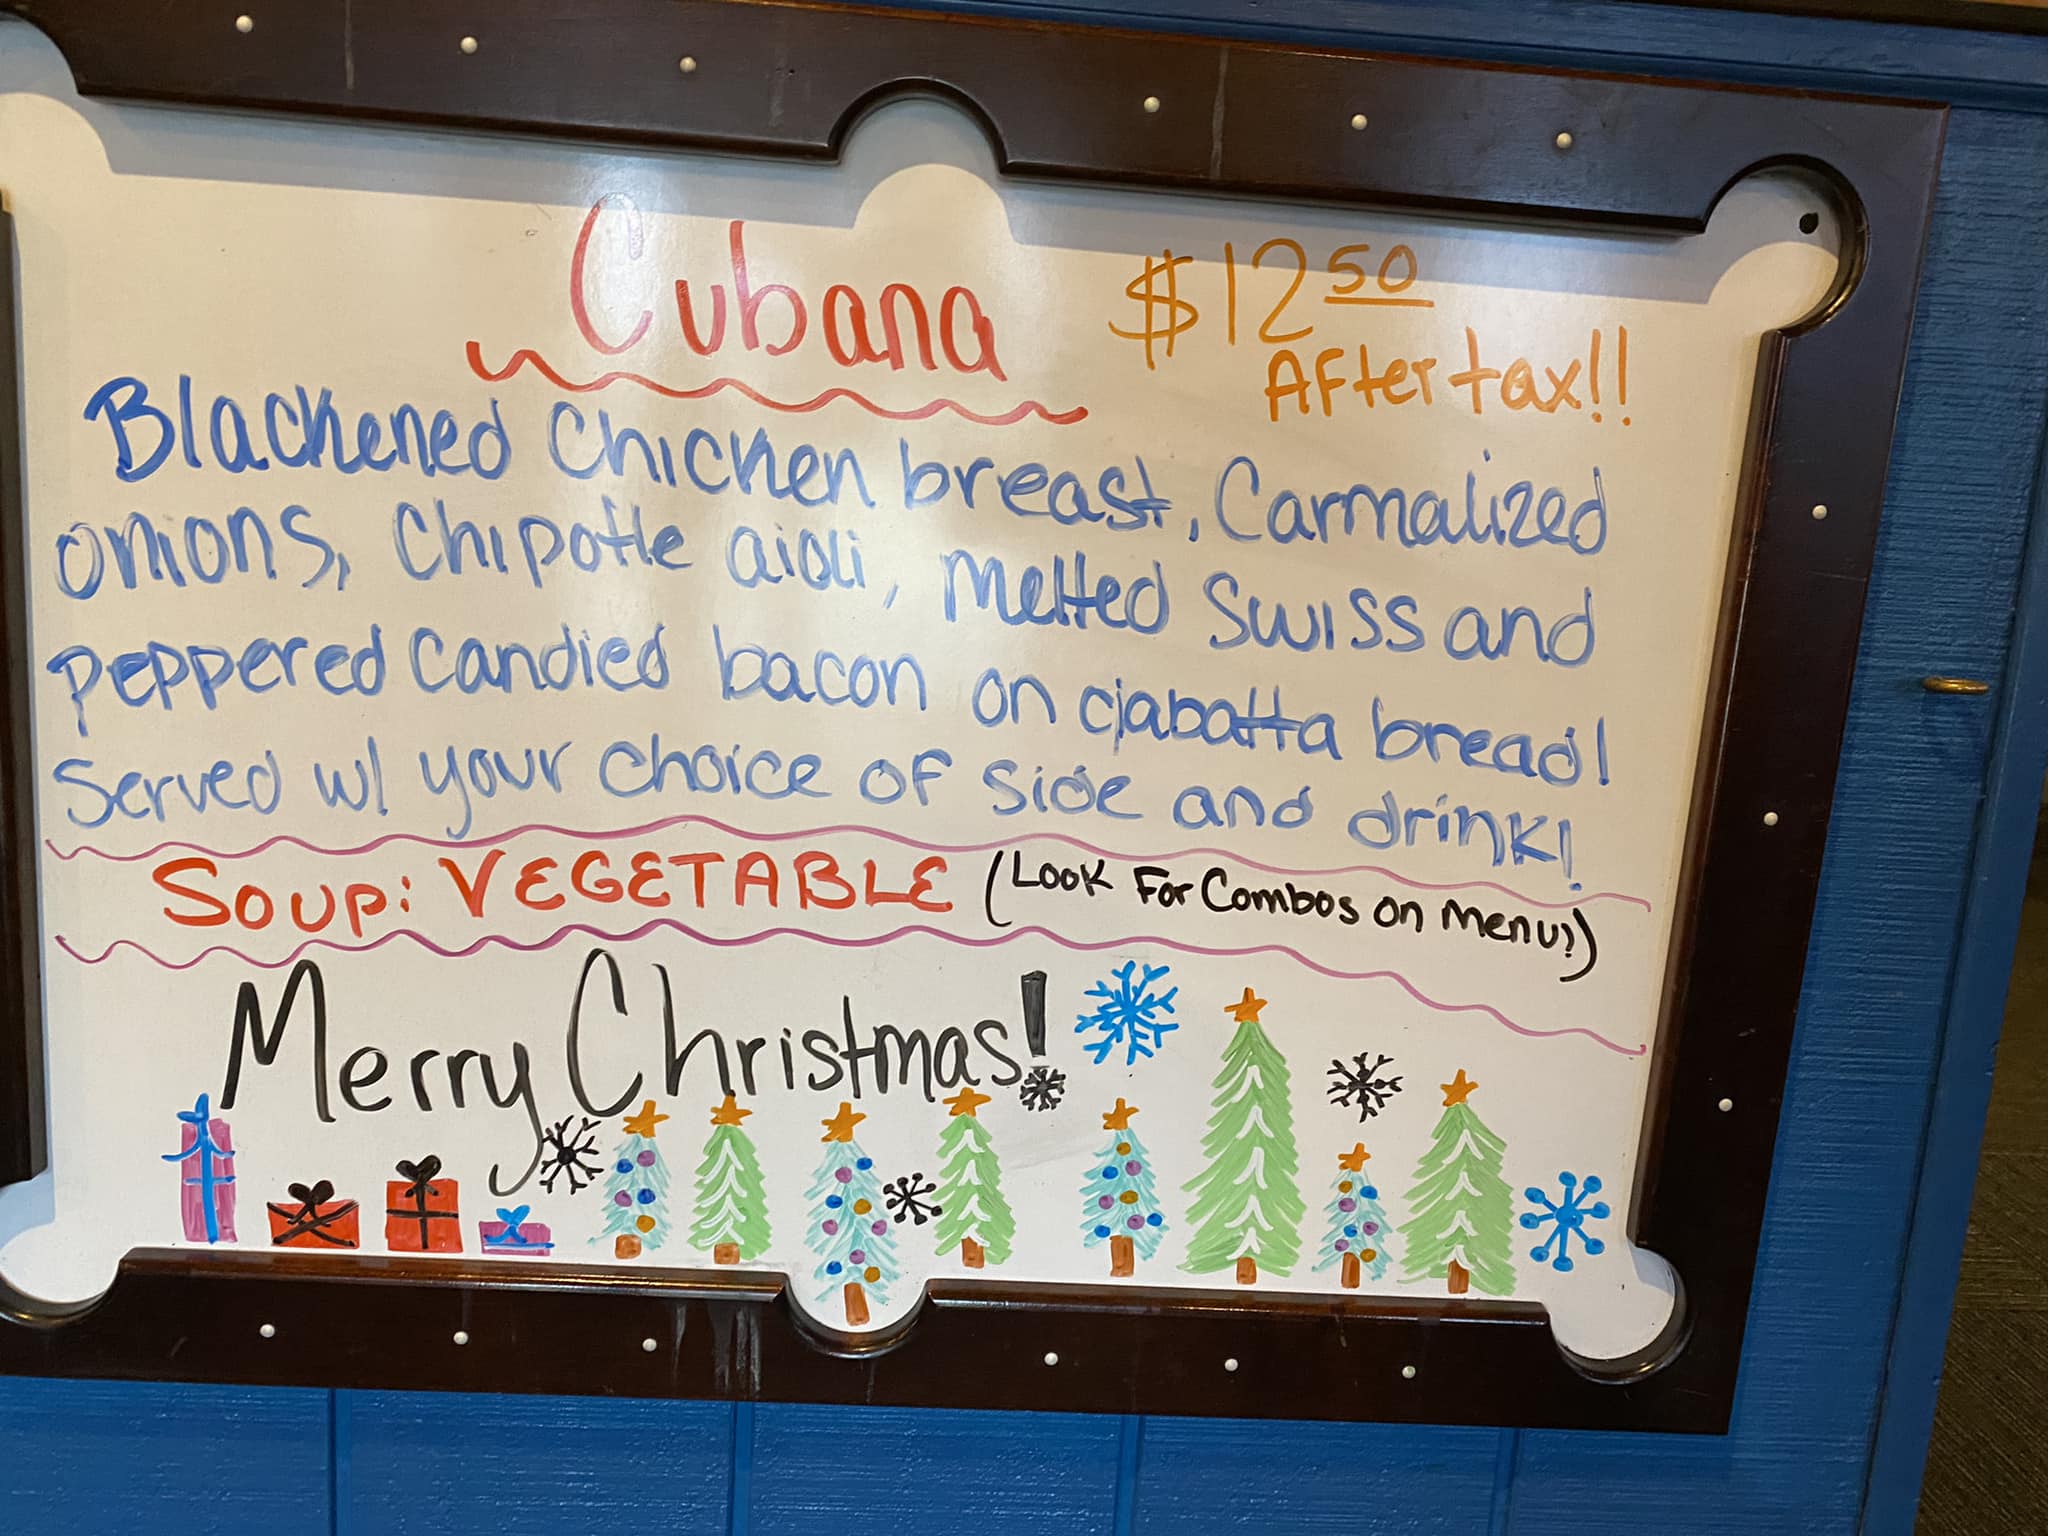 Cubana $12 50
After tax!!
Blackened Chicken breast, Carmalized
onions, Chipotle aioli, Melted Swiss and
peppered candied bacon on ciabatta bread!
Served w/ your choice of side and drink!
Soup: VEGETABLE (Look For Combos on Menu!)
Merry Christmas!